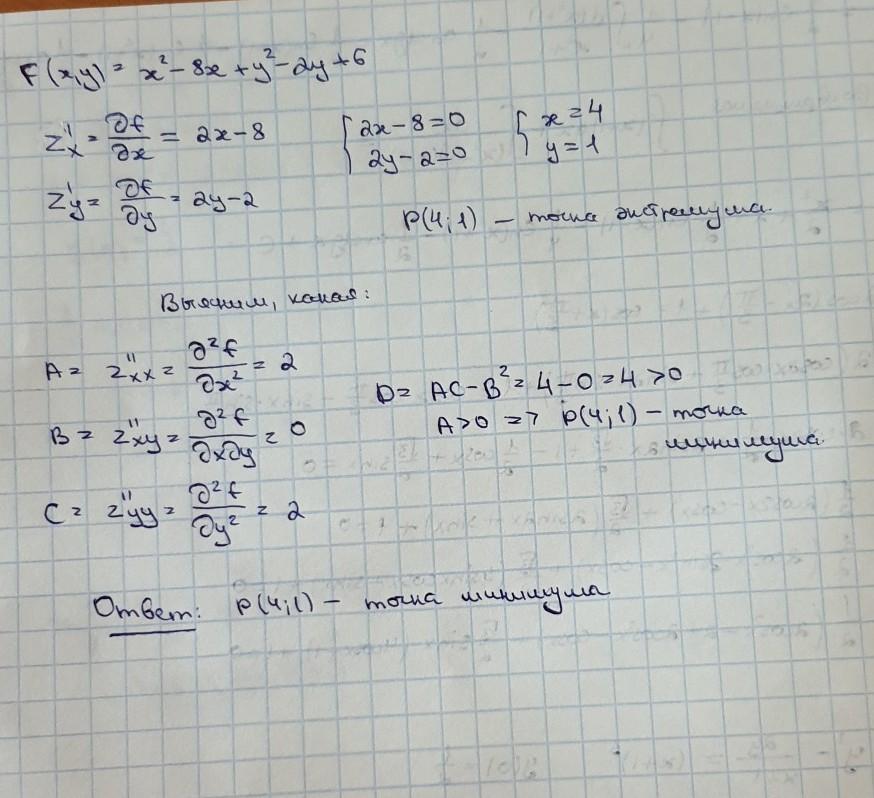 F(x,y) = x² - 8x + y² - 2y + 6
z'x = ∂f/∂x = 2x - 8 { 2x - 8 = 0 2y - 2 = 0 { x = 4 y = 1
z'y = ∂f/∂y = 2y - 2
P(4;1) - точка экстремума.
Выясним, какая:
A = z''xx = ∂²f/∂x² = 2
D = AC - B² = 4 - 0 = 4 > 0
B = z''xy = ∂²f/∂x∂y = 0
A > 0 => P(4;1) - точка
минимума.
C = z''yy = ∂²f/∂y² = 2
Ответ: P(4;1) - точка минимума